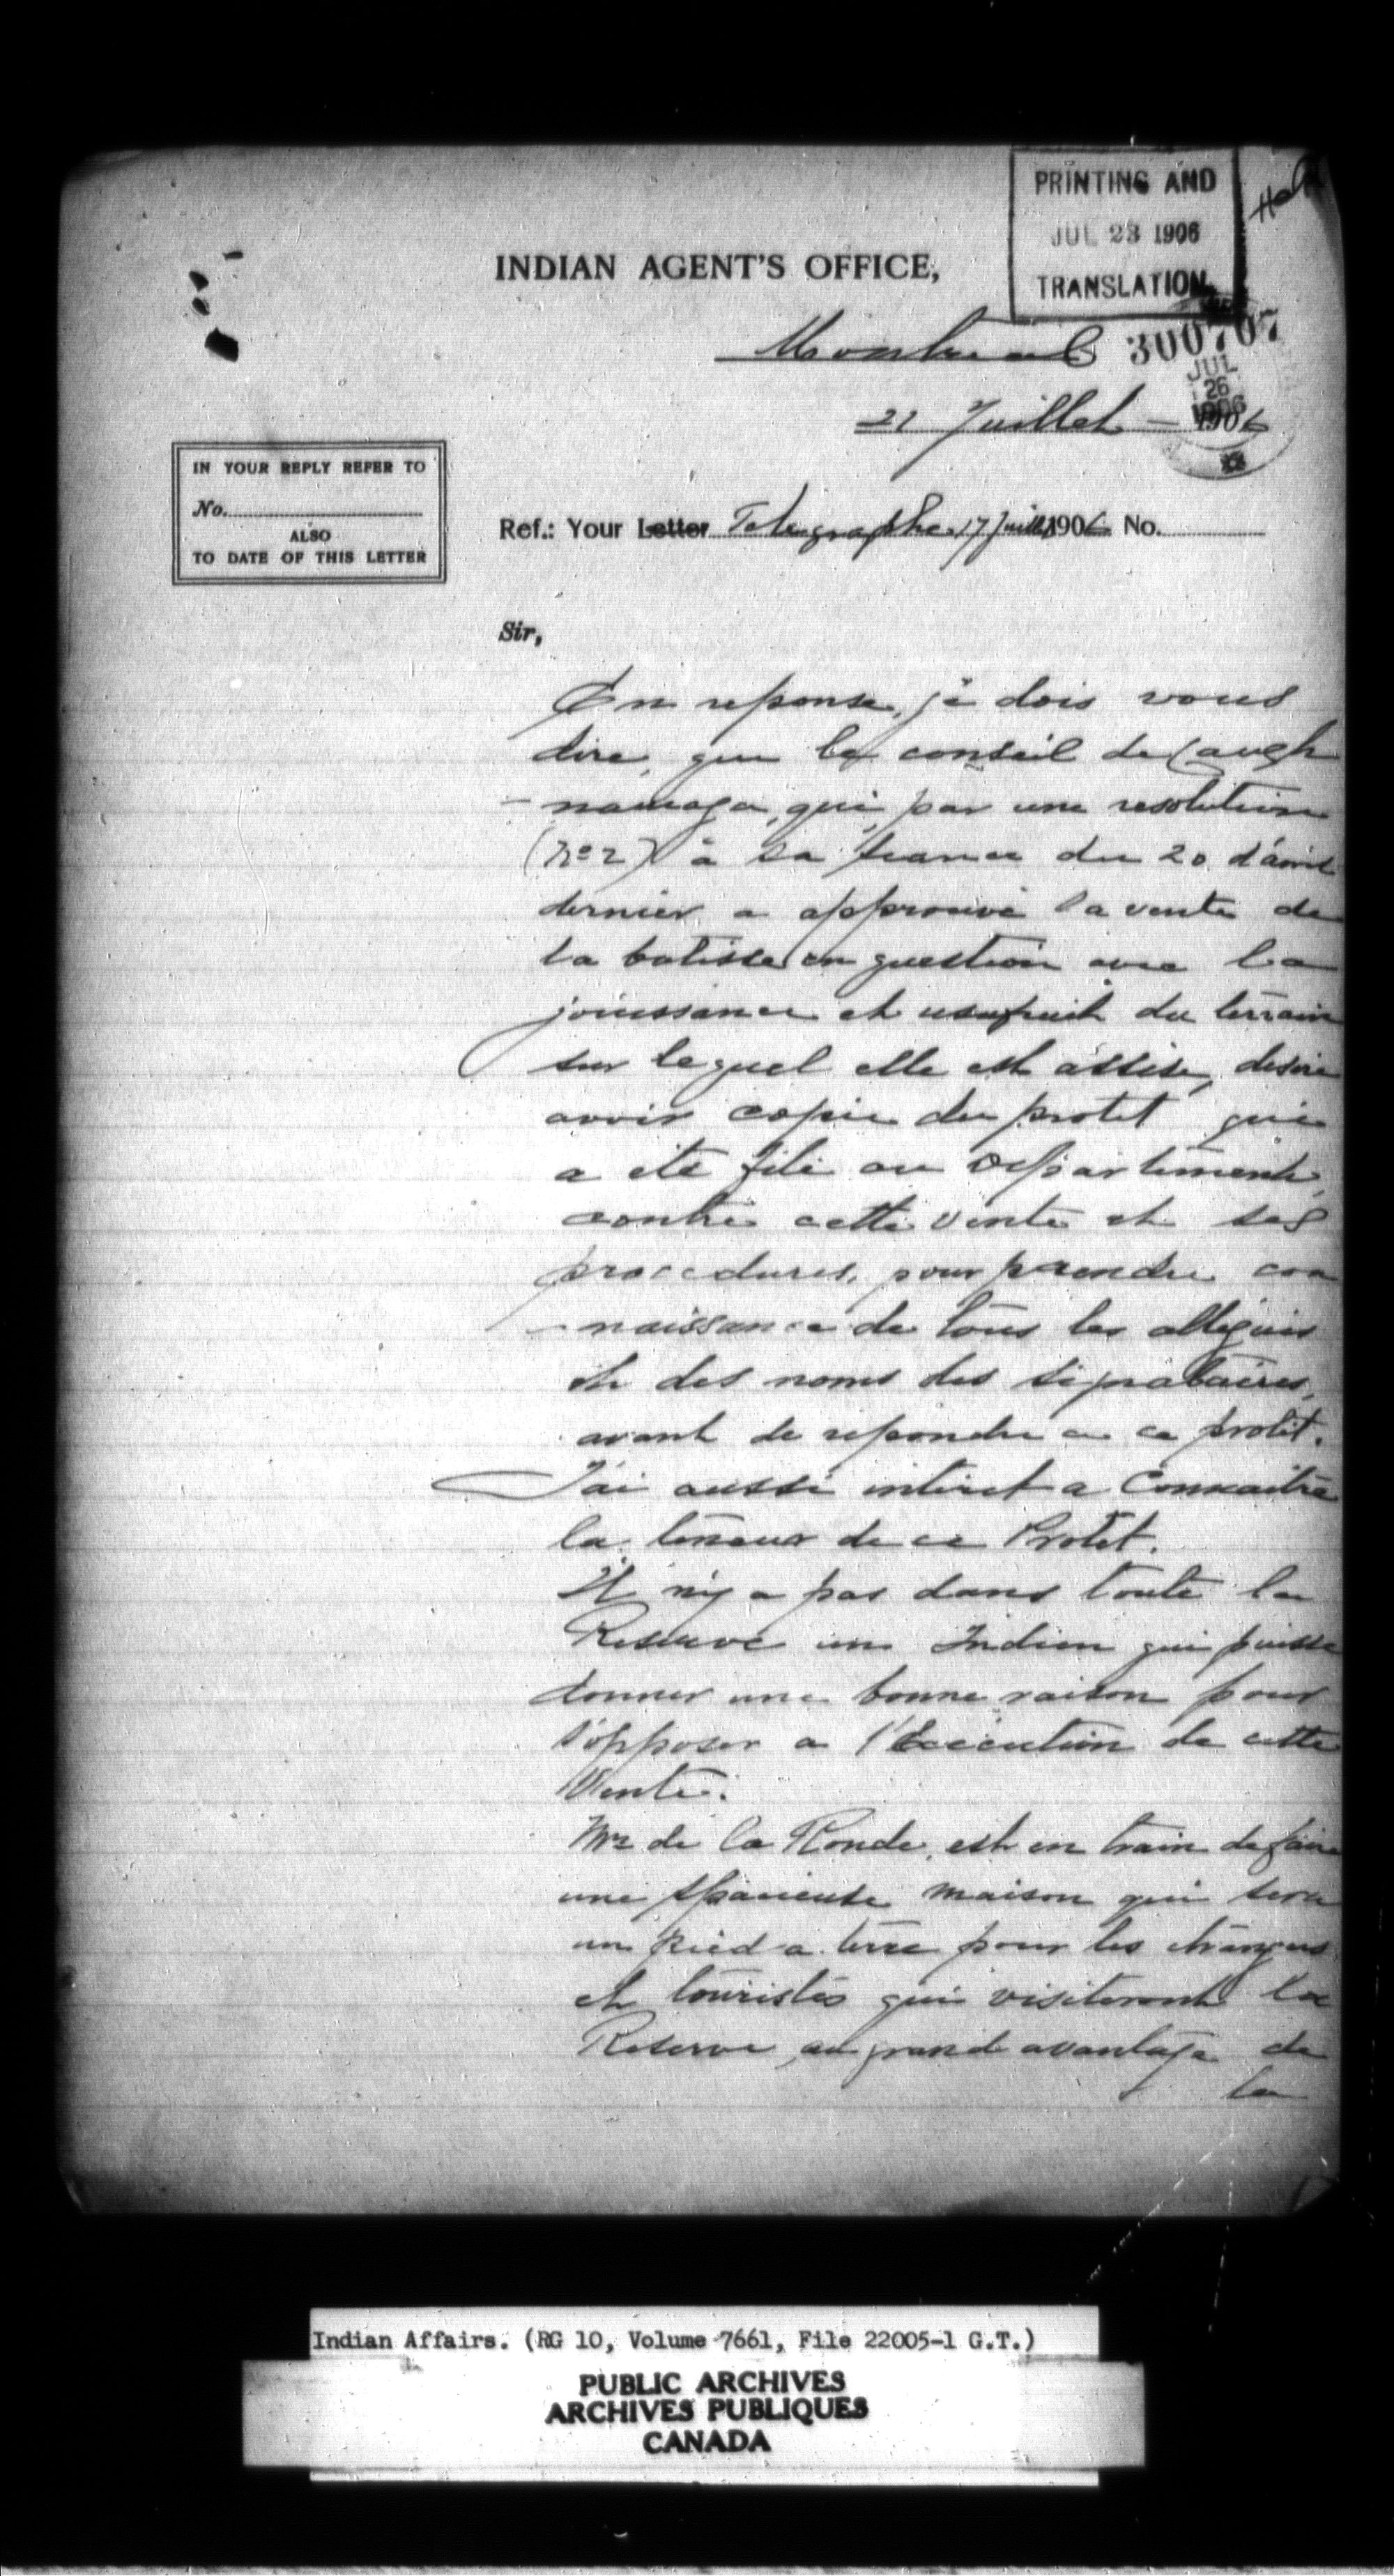 PRINTING AND
JUL 23 1906
TRANSLATION
INDIAN AGENT'S OFFICE,
Montreal
300707
JUL
26
1906
21 Juillet — 1906
IN YOUR REPLY REFER TO
No.
ALSO
TO DATE OF THIS LETTER
Ref.: Your Letter Telegraphe 17 Juillet 1906 No.
Sir,
En reponse, je dois vous
dire, que le conseil de Caugh
-nawaga, qui, par une resolution
(No 2) à sa seance du 20 d'avril
dernier a approuvé la vente de
la batisse en question avec la
jouissance et usufruit du terrain
sur lequel elle est assise, desire
avoir copie du protet qui
a été filé au Departement,
contre cette vente et ses
procedures, pour prendre con
-naissance de tous les allegués
et des noms des signataires,
avant de repondre a ce protet.
J'ai aussi interet a Connaitre
la teneur de ce Protet.
Il n'y a pas dans toute la
Reserve un Indien qui puisse
donner une bonne raison pour
s'opposer a l'Execution de cette
Vente.
Mr de la Ronde, est en train de faire
une spacieuse maison qui sera
un pied a terre pour les étrangers
et touristes qui visiteront la
Reserve, au grand avantage de
la
Indian Affairs. (RG 10, Volume 7661, File 22005-1 G.T.)
PUBLIC ARCHIVES
ARCHIVES PUBLIQUES
CANADA